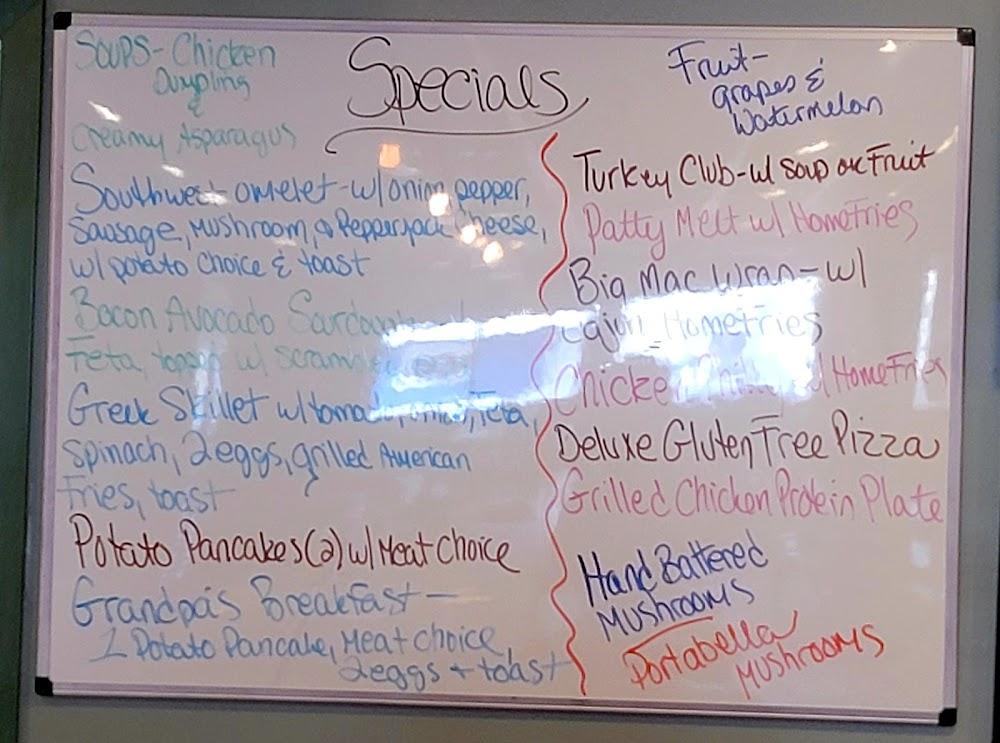 Soups- Chicken
Dumpling
&
Creamy Asparagus
Specials
Fruit-
grapes &
Watermelon
Southwest omelet-w/onion, pepper,
Sausage, Mushroom, & Pepperjack Cheese,
w/potato choice & toast
Bacon Avocado
Feta, w/
Greek Skillet w/ Feta,
Spinach, 2eggs, grilled American
Fries, toast
Potato Pancakes(2) w/Meat choice
Grandpa's Breakfast-
1 Potato Pancake, Meat choice,
2eggs + toast
Turkey Club-w/ soup or Fruit
Patty Melt w/ HomeFries
Big Mac Wrap-w/
Cajun HomeFries
Chicken w/ HomeFries
Deluxe Gluten Free Pizza
Grilled Chicken Protein Plate
Hand Battered
Mushrooms
Portabella
Mushrooms